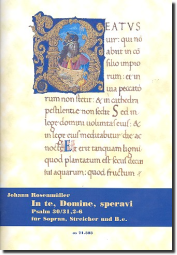 BEATVS
uir: qui no(n)
abiit in co(n)
silio impio
rum: et in uia
peccato
rum non stetit: & in cathedra
pestilentie non sedit; Sed in
lege domini uoluntas eius: & in
lege eius meditabitur die ac
nocte Et erit tanquam lignum
quod plantatum est secus decur
sus aquarum: quod fructum
Johann Rosenmüller
In te, Domine, speravi
Psalm 30/31,2-6
für Sopran, Streicher und B.c.